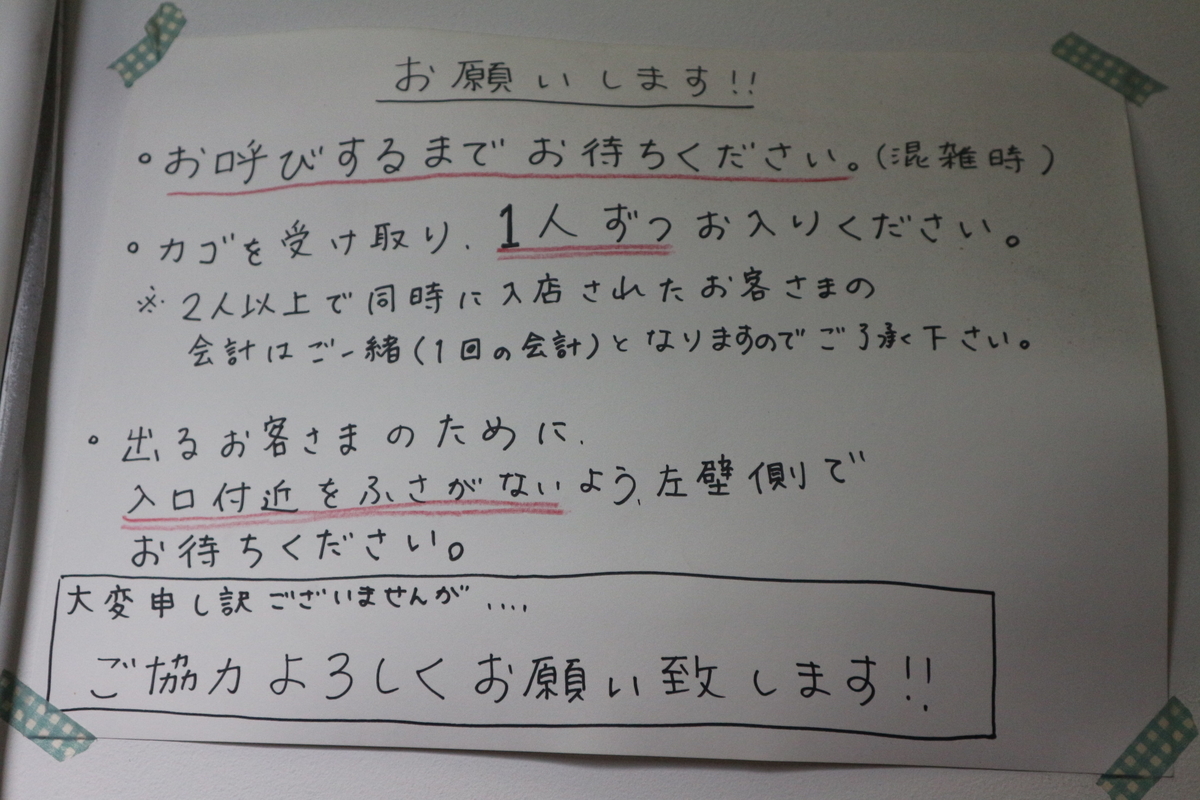 お願いします!!
。お呼びするまでお待ちください。(混雑時)
。カゴを受け取り、1人ずつお入りください。
※2人以上で同時に入店されたお客さまの
会計はご一緒(1回の会計)となりますのでご了承く下さい。
。出るお客さまのために、
入口付近をふさがないよう、左壁側で
お待ちください。
大変申し訳ございませんが....
ご協力よろしくお願い致します!!